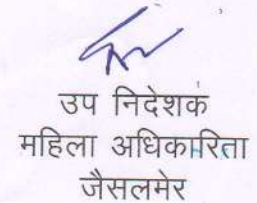 उप निदेशक
महिला अधिकारिता
जैसलमेर